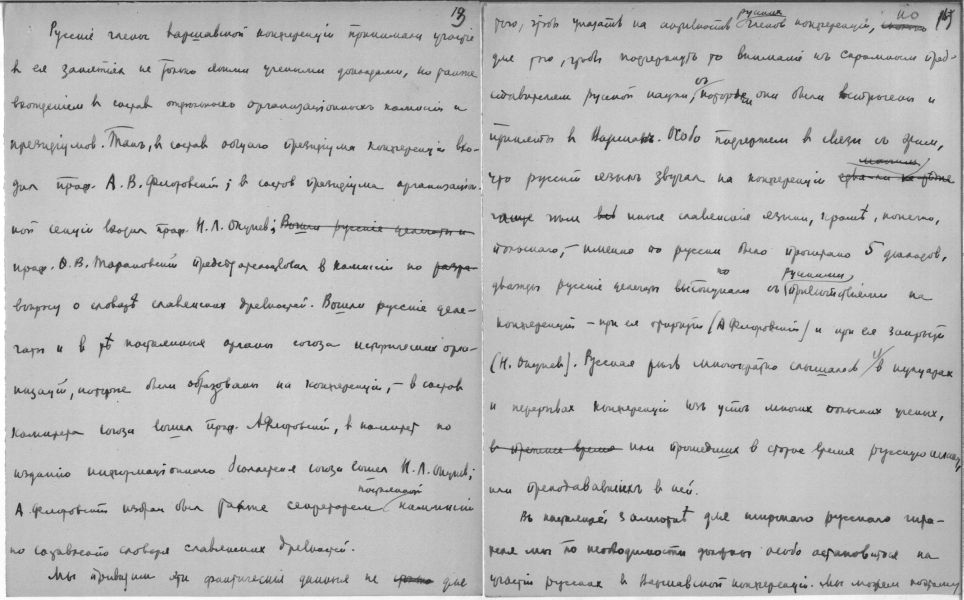 13
Русскіе члены Варшавской конференціи принимали участіе
в ея занятіях не только своими учеными докладами, но также
вхожденіем в состав отдѣльных организаціонных комиссій и
президіумов. Так, в состав общаго президіума конференціи вхо-
дил проф. А.В. Флоровскій; в состав президіума организаціон-
ной секціи входил проф. Н.Л. Окунев; Вошли русскіе делегаты и
проф. Ѳ.В. Тарановскій предсѣдательствовал в комиссіи по разра-
вопросу о словарѣ славянских древностей. Вошли русскіе деле-
гаты и в тѣ постоянные органы союза исторических орга-
низацій, которые были образованы на конференціи, – в состав
комитета союза вошел проф. А. Флоровскій, в комитет по
изданію информаціоннаго бюллетеня союза вошел Н.Л. Окунев;
постоянной
А. Флоровскій избран был также секретарем комиссіи
по созданію словаря славянских древностей.
Мы приводим эти фактическія данныя не только для
но
русских
того, чтобы указать на активность членов конференціи,
для того, чтобы подчеркнуть то вниманіе к скромным пред-
ставителям русской науки, с которым они были встрѣчены и
приняты в Варшавѣ. Особо подчеркнем в связи с этим,
что русскій язык звучал на конференціи едва ли не
чаще чѣм всѣ иные славянскіе языки, кромѣ, конечно,
польскаго, – именно по русски было прочитано 5 докладов,
по русски
дважды русскіе делегаты выступали с привѣтствіями на
конференціи – при ея открытіи (А. Флоровскій) и при ея закрытіи
(Н. Окунев). Русская рѣчь многократно слышалась и в кулуарах
и перерывах конференціи из уст многих польских ученых,
в прежнее время или прошедших в старое время русскую школу,
или преподававших в ней.
В настоящей замѣткѣ для широкаго русскаго чита-
теля мы по необходимости должны особо остановиться на
участіи русских в Варшавской конференціи. Мы можем поэтому